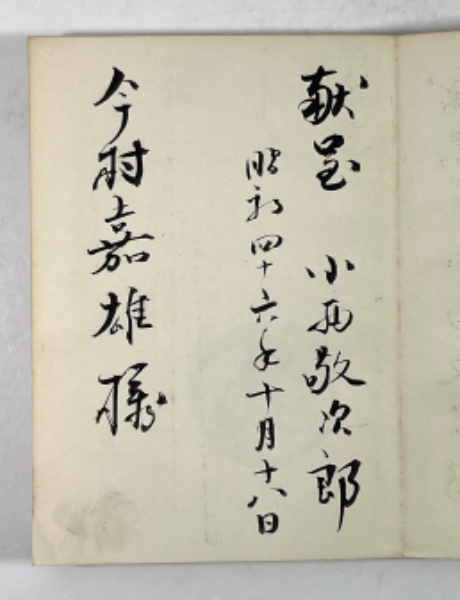 献呈 小西敬次郎
昭和四十六年十月十八日
今村嘉雄様